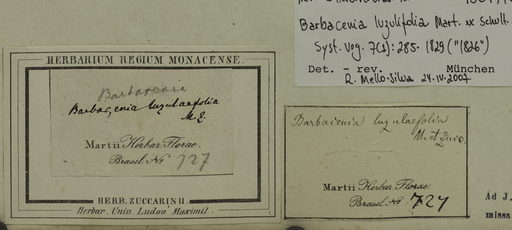 Barbacenia luzulifolia Mart. ex Schult.
Syst. veg. 7(1): 285. 1829 ("1826")
Det. - rev. München
R. Mello-Silva 24.IV.2007
HERBARIUM REGIUM MONACENSE.
Barbacenia
Barbacenia luzulaefolia
M. Z.
Martii Herbar. Florae
Brasil. No 727
HERB. ZUCCARINII.
Herbar. Univ. Ludov. Maximil.
Barbacenia luzulaefolia
Mart.
Martii Herbar. Florae
Brasil. No 727
Ad J.
missa